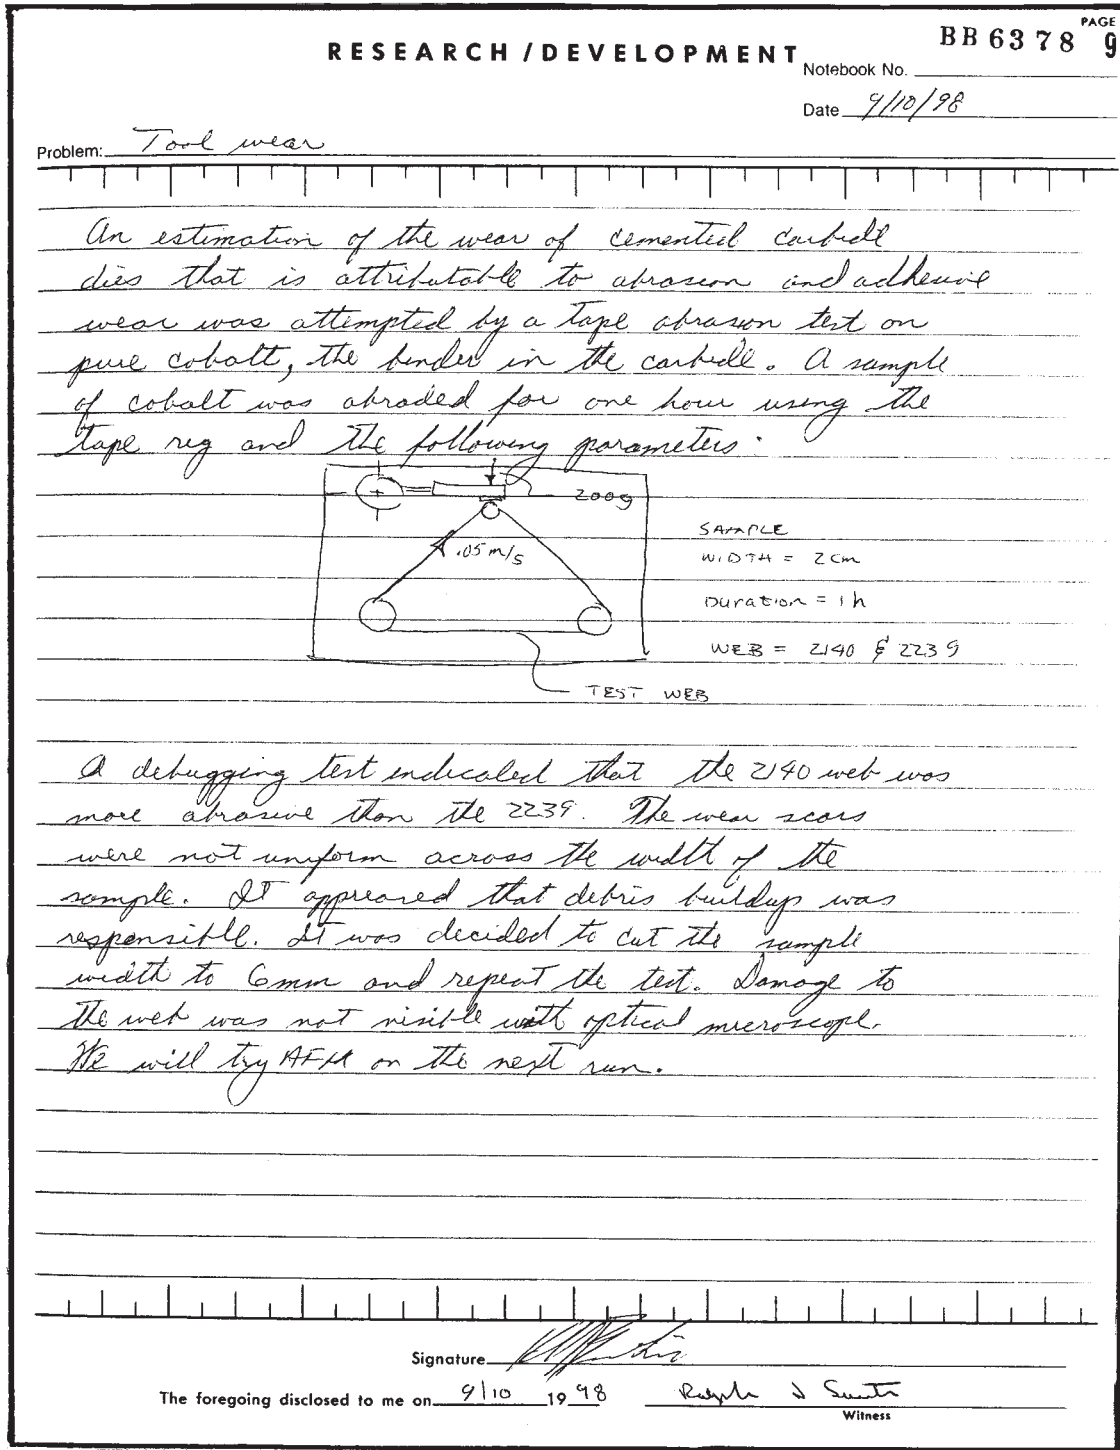 PAGE
BB 6378 9
RESEARCH / DEVELOPMENT
Notebook No.
Date 9/10/98
Problem: Tool wear
An estimation of the wear of cemented carbide
dies that is attributable to abrasion and adhesive
wear was attempted by a tape abrasion test on
pure cobalt, the binder in the carbide. A sample
of cobalt was abraded for one hour using the
tape rig and the following parameters:
200g
.05 m/s
SAMPLE
WIDTH = 2 cm
Duration = 1 h
WEB = 2140 & 2239
TEST WEB
A debugging test indicated that the 2140 web was
more abrasive than the 2239. The wear scars
were not uniform across the width of the
sample. It appreared that debris buildup was
responsible. It was decided to cut the sample
width to 6mm and repeat the test. Damage to
the web was not visible with optical microscope.
We will try AFM on the next run.
Signature
The foregoing disclosed to me on 9/10 19 98 Ralph
Witness